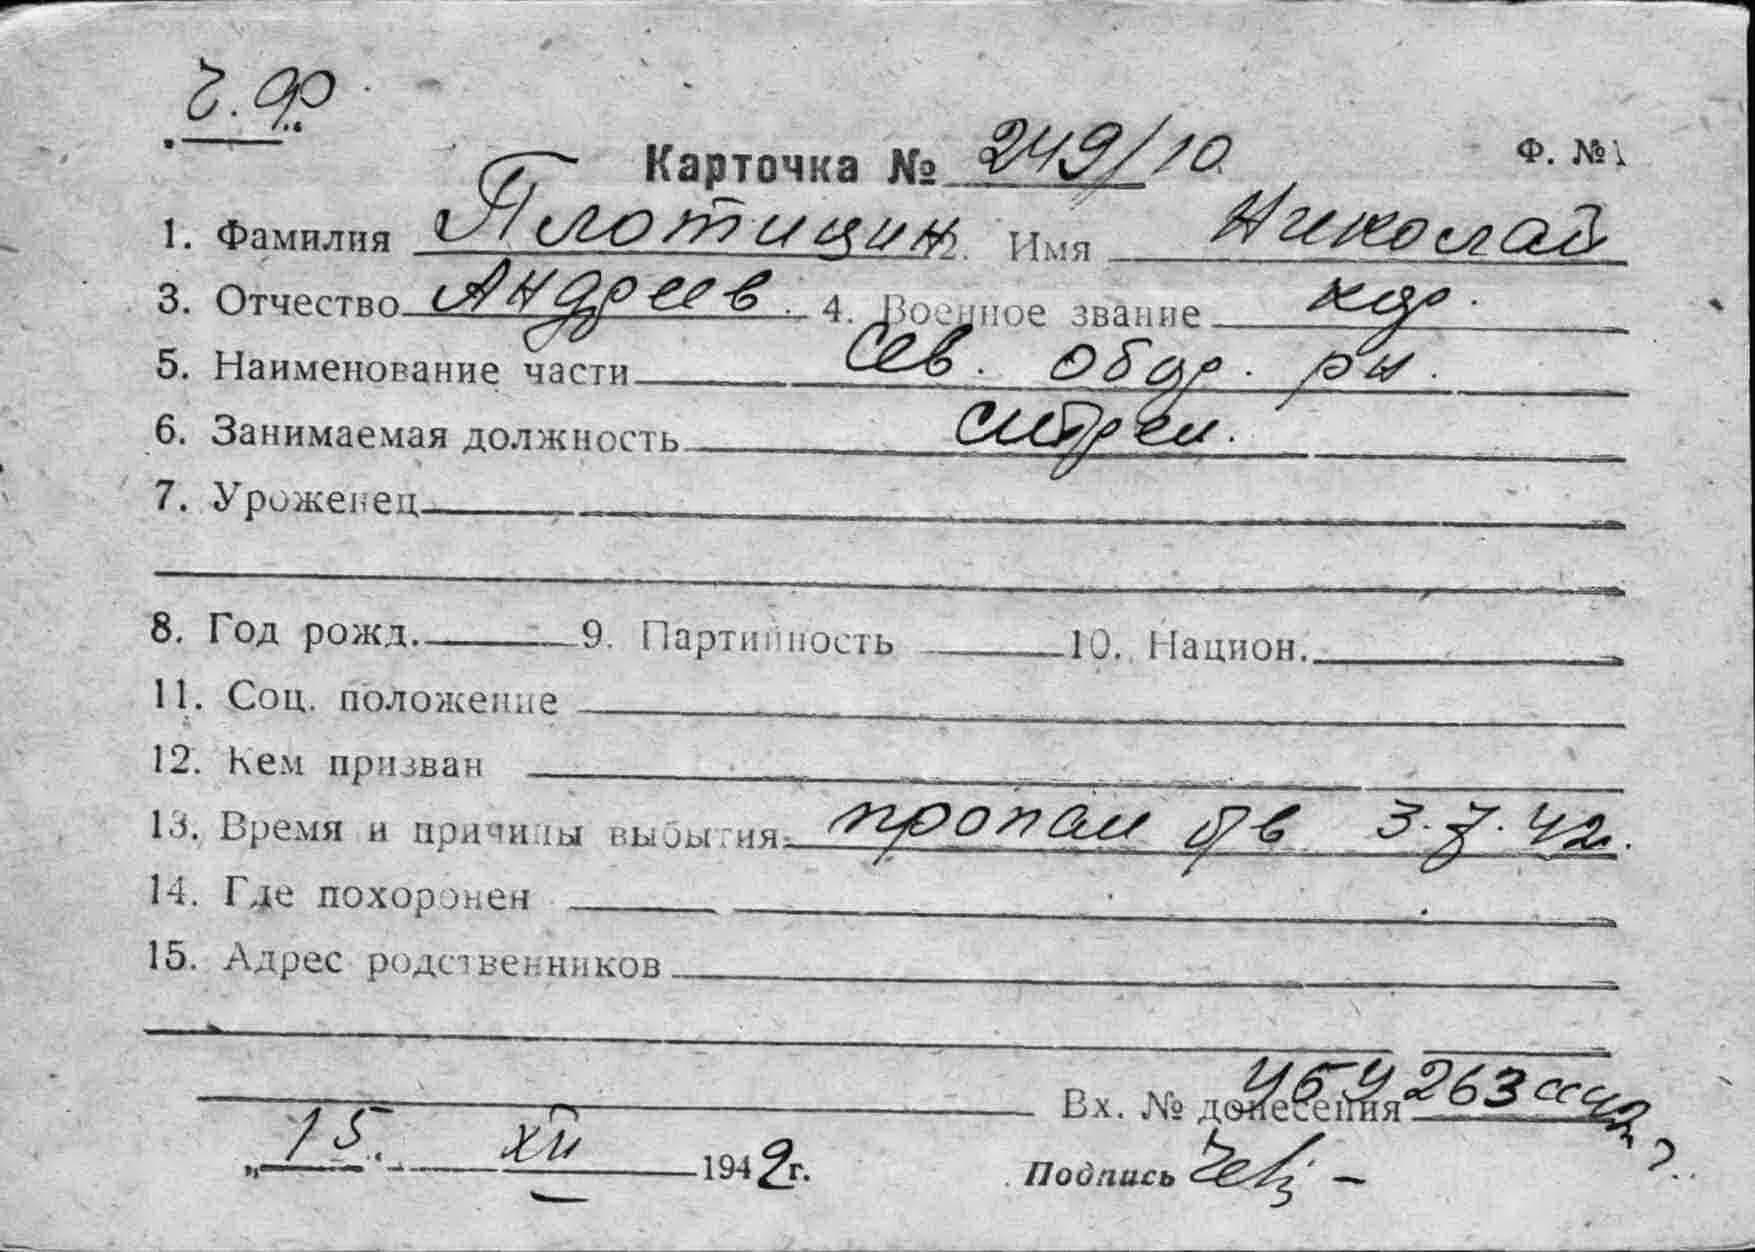 Ч.Ф.
Карточка № 249/10. Ф. №1
1. Фамилия Плотицин 2. Имя Николай
3. Отчество Андреев. 4. Военное звание кдр.
5. Наименование части Сев. обдр. рн.
6. Занимаемая должность стрел.
7. Уроженец
8. Год рожд. 9. Партийность 10. Национ.
11. Соц. положение
12. Кем призван
13. Время и причины выбытия: пропал б/в 3.7.42г.
14. Где похоронен
15. Адрес родственников
Вх. № донесения 263
„15. XII 1942г. Подпись